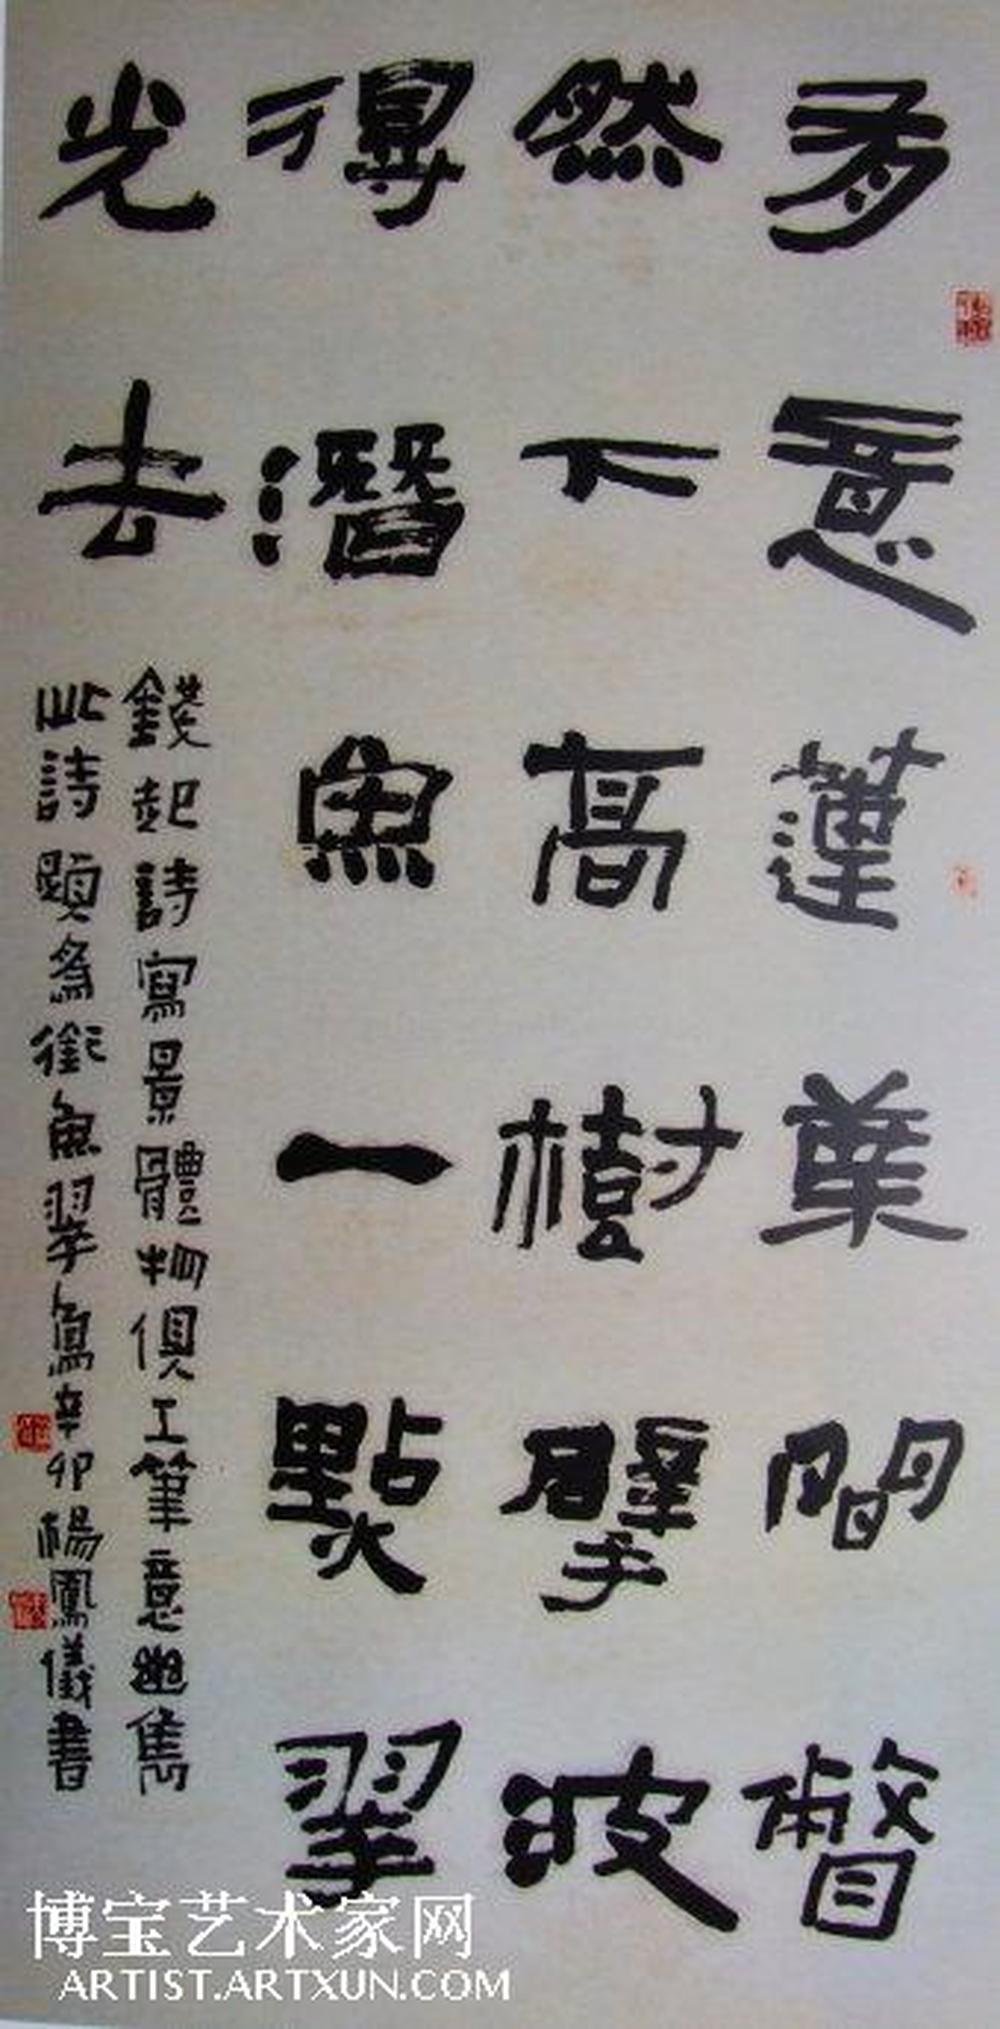 有意蓮葉間瞥
然下高樹擘波
得潛魚一點翠
光去
錢起詩寫景體物俱工筆意幽雋
此詩題為銜魚翠鳥辛卯楊鳳儀書
博宝艺术家网
ARTIST.ARTXUN.COM